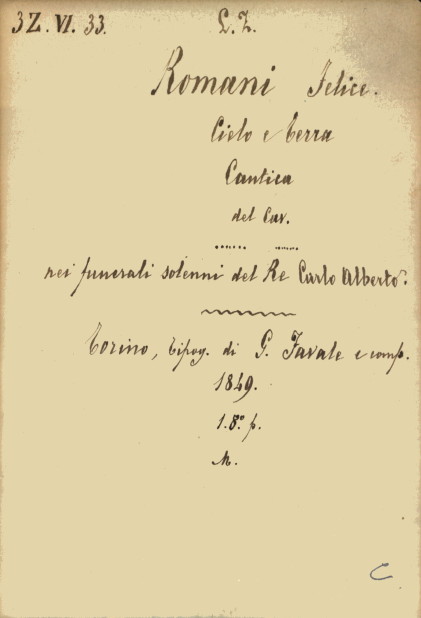 3Z. VI. 33. L. Z.
Romani Felice.
Cielo e terra
Cantica
del Cav.
...... ......
nei funerali solenni del Re Carlo Alberto.
Torino, tipog. di G. Favale e comp.
1849.
1. 8.° p.
M.
C